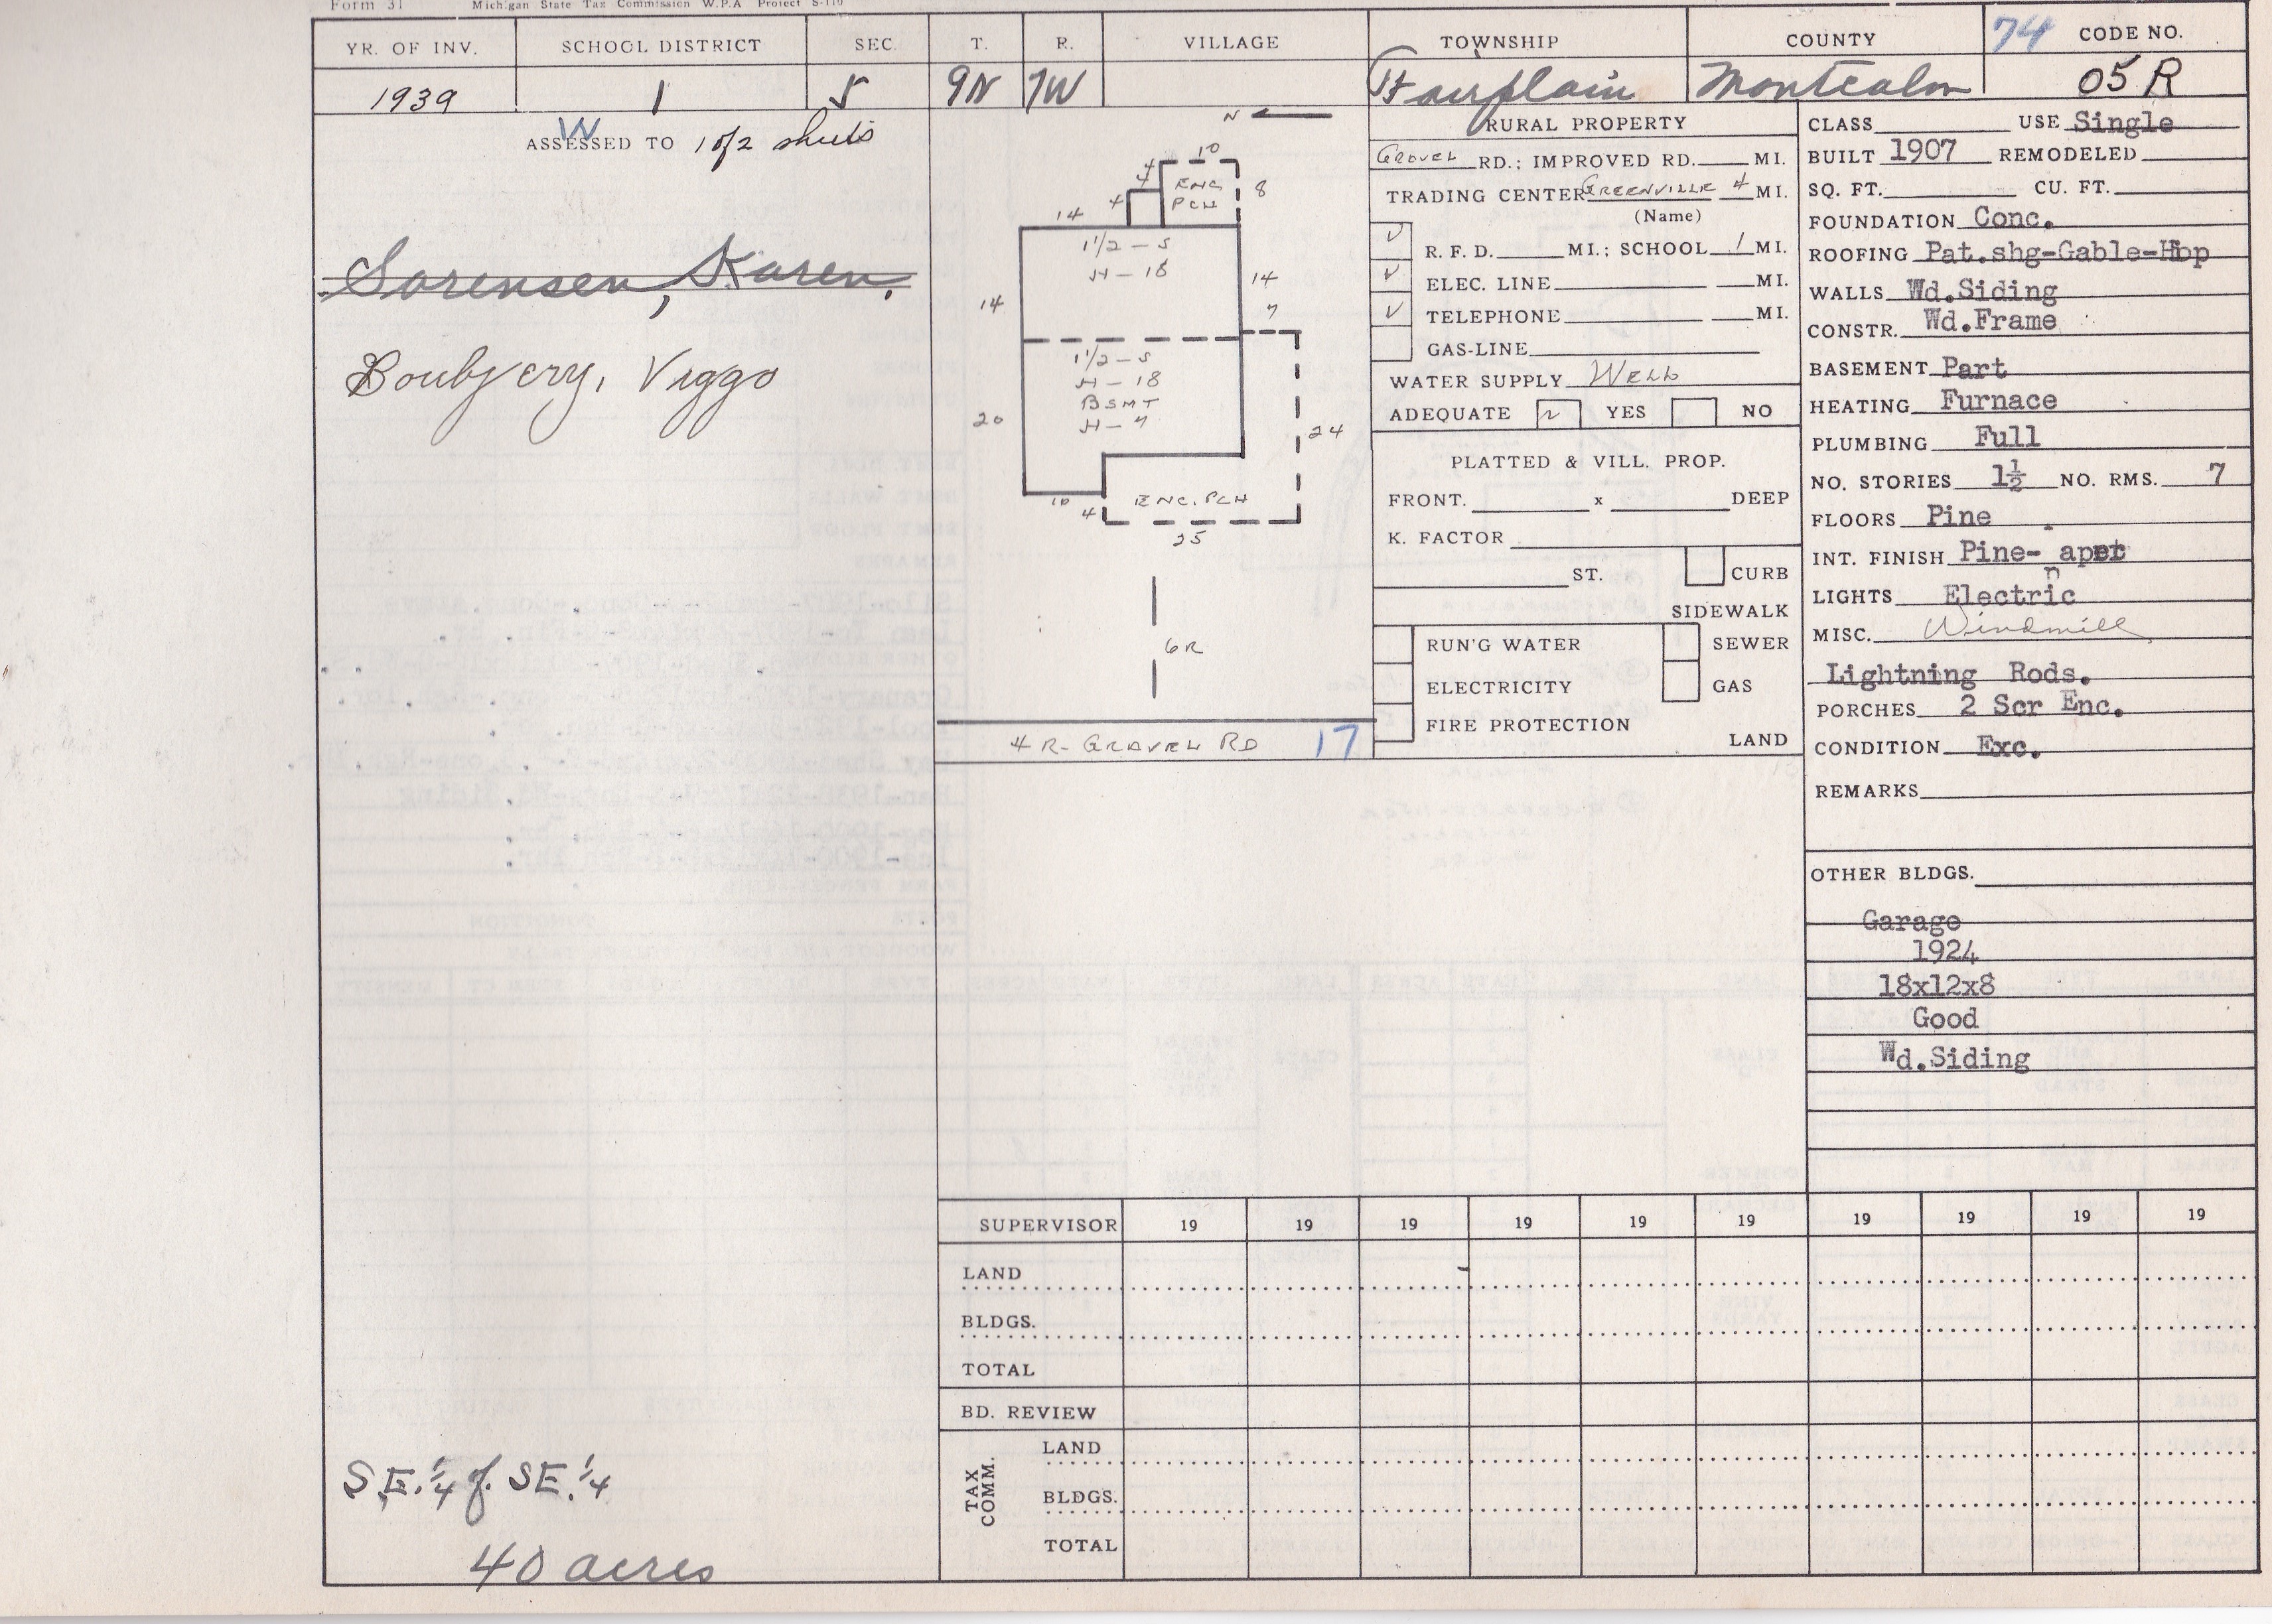 Form 31 Michigan State Tax Commission W.P.A Project S-110
YR. OF INV. SCHOOL DISTRICT SEC. T. R. VILLAGE TOWNSHIP COUNTY 74 CODE NO.
1939 1 5 9N 7W Fairplain Montcalm 05 R
W
ASSESSED TO 1 of 2 sheets
Sorensen, Karen.
Viggo
S.E. 1/4 of SE. 1/4
40 acres
N
10
4
4
ENC
PCH
8
14
1 1/2 - S
H - 18
14
14
7
1 1/2 - S
H - 18
BSMT
H - 7
20
24
10
4
ENC. PCH
25
6R
4 R - GRAVEL RD 17
RURAL PROPERTY
Gravel RD.; IMPROVED RD. MI.
TRADING CENTER GREENVILLE 4 MI.
(Name)
✓ R. F. D. MI.; SCHOOL 1 MI.
✓ ELEC. LINE MI.
✓ TELEPHONE MI.
GAS-LINE
WATER SUPPLY WELL
ADEQUATE ✓ YES NO
PLATTED & VILL. PROP.
FRONT. x DEEP
K. FACTOR
ST. CURB
SIDEWALK
RUN'G WATER SEWER
ELECTRICITY GAS
FIRE PROTECTION
LAND
CLASS USE Single
BUILT 1907 REMODELED
SQ. FT. CU. FT.
FOUNDATION Conc.
ROOFING Pat.shg-Gable-Hip
WALLS Wd.Siding
CONSTR. Wd.Frame
BASEMENT Part
HEATING Furnace
PLUMBING Full
NO. STORIES 1½ NO. RMS. 7
FLOORS Pine
INT. FINISH Pine-
LIGHTS Electric
MISC. Windmill
Lightning Rods.
PORCHES 2 Scr Enc.
CONDITION Exc.
REMARKS
OTHER BLDGS.
Garage
1924
18x12x8
Good
Wd.Siding
SUPERVISOR 19 19 19 19 19 19 19 19 19 19
LAND
BLDGS.
TOTAL
BD. REVIEW
TAX COMM.
LAND
BLDGS.
TOTAL